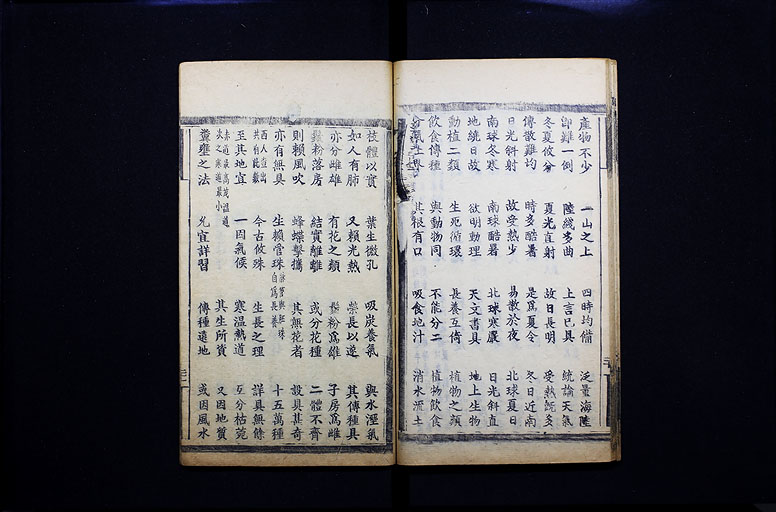 產物不少 一山之上 四時均備 泛量海陸
卽難一例 陸綫多曲 上言已具 統論天氣
冬夏攸分 夏光直射 故日長明 受熱旣多
傳散難均 時多酷暑 是爲夏令 冬日近南
日光斜射 故受熱少 易散於夜 北球夏日
南球冬寒 南球酷暑 北球寒嚴 日光斜直
地繞日故 欲明動理 天文書具 地上生物
動植二類 生死循環 長養互倚 植物之類
飲食傳種 與動物同 不能分二 植物飲食
其根有口 吸食地汁 消水流土
枝體以實 葉生微孔 吸炭養氣 與水溼氣
如人有肺 又賴光熱 榮長以遂 其傳種具
亦分雌雄 有花之類 鬚粉爲雄 子房爲雌
鬚粉落房 結實離離 或分花種 二體不齊
則賴風吹 蜂蝶擊攜 其無花者 設具甚奇
亦有無具 生賴管珠 自爲長養 十五萬種
共有此數 今古攸殊 生長之理 詳具無餘
至其地宜 一因氣候 寒溫熱道 互分枯菀
赤道最高茂溫道次之寒道最小 其生所資 又因地質
糞壅之法 尤宜詳習 傳種遠地 或因風水